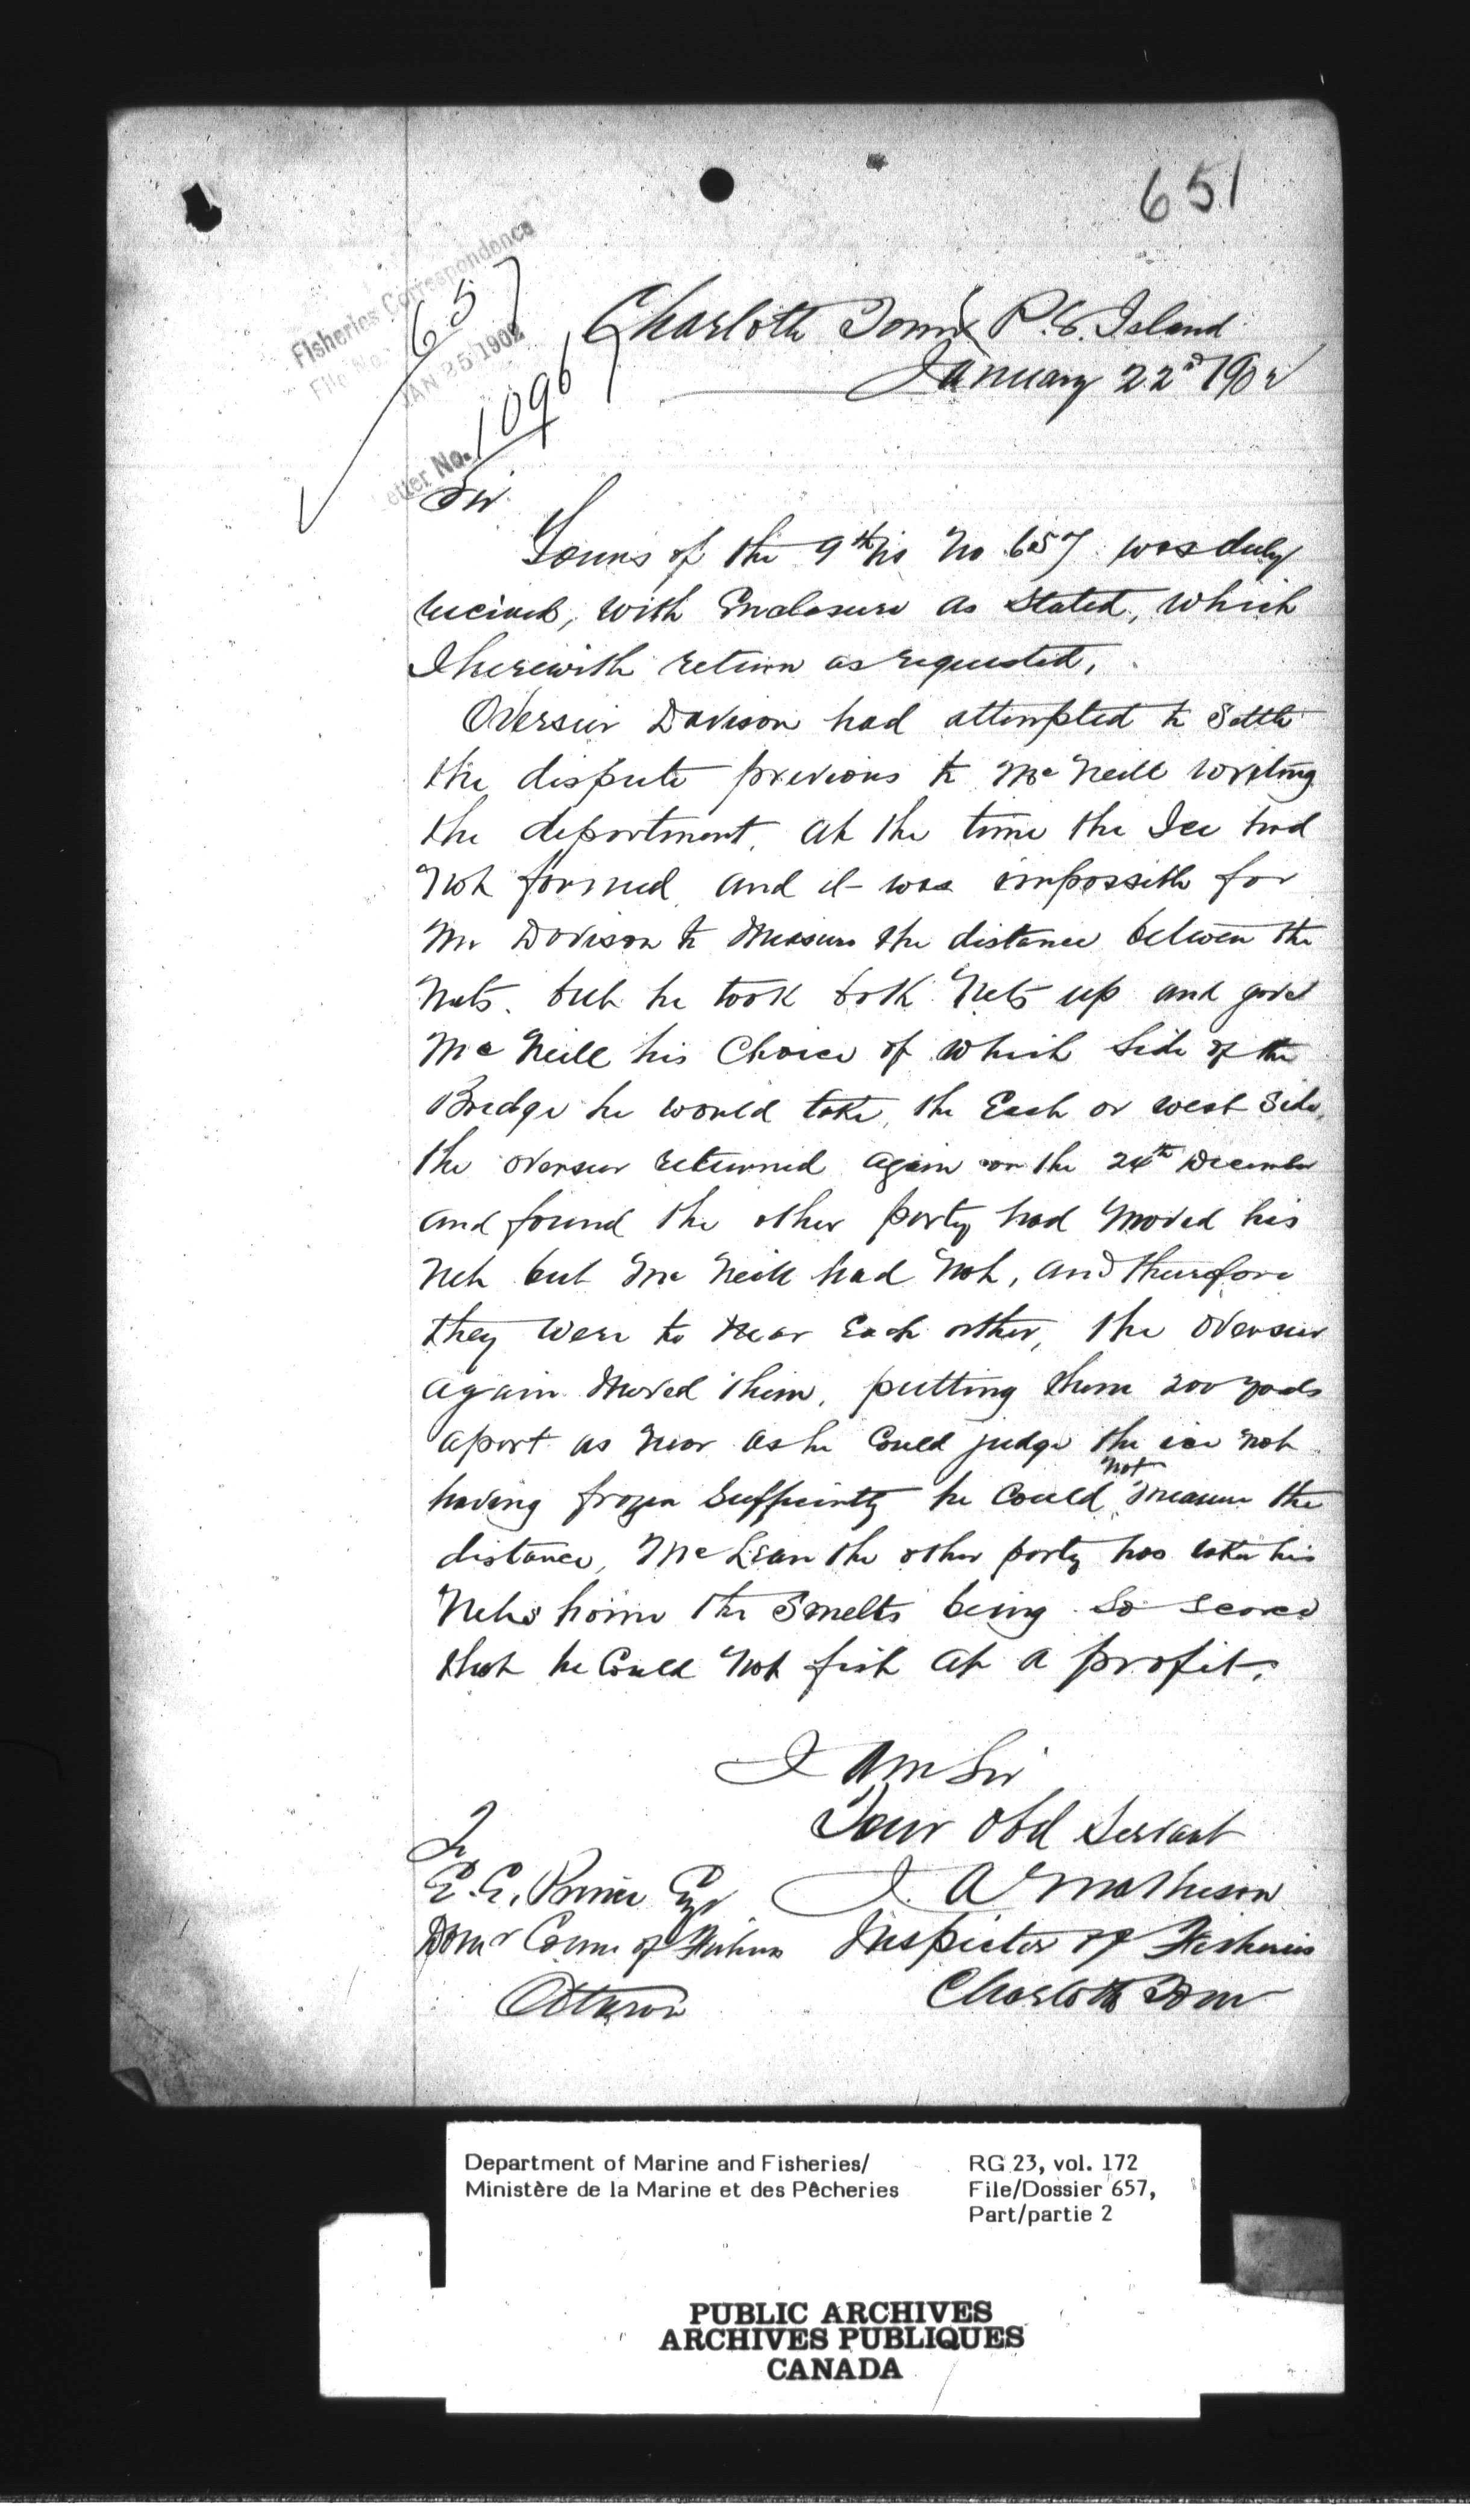 651
Fisheries Correspondence
File No. 657
JAN 25 1902
Letter No. 1096
Charlotte Town P.E. Island
January 22nd 1902
Sir
Yours of the 9th No 657 was duly
recieved, with Enclosure as Stated, which
I herewith return as requested,
Overseer Davison had attempted to Settle
the dispute previous to McNeill writing
the department, at the time the Ice had
Not formed, and it was impossible for
Mr Davison to Measure the distance between the
Nets. but he took both Nets up and gave
McNeill his Choice of which Side of the
Bridge he would take, the East or west Side,
the overseer returned again on the 24th December
and found the other party had Moved his
Net but McNeill had Not, and therefore
they were to near Each other, the Overseer
again Moved them, putting them 200 yards
apart as near as he Could judge the ice not
having frozen Sufficiently he Could not Measure the
distance, McLean the other party has taken his
Nets home the Smelts being So Scarce
that he Could Not fish at a profit.
I Am Sir
Your Obd Servant
J. A Matheson
Inspector of Fisheries
Charlotte Town
To
E. E. Prince Esqr
Domn Comm of Fisheries
Ottawa
Department of Marine and Fisheries/
Ministère de la Marine et des Pêcheries
RG 23, vol. 172
File/Dossier 657,
Part/partie 2
PUBLIC ARCHIVES
ARCHIVES PUBLIQUES
CANADA